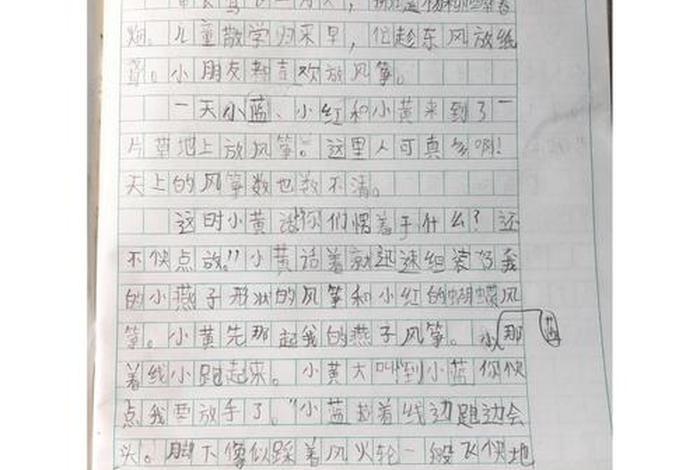 草长莺飞二月天，拂堤杨柳醉春
烟。儿童散学归来早，忙趁东风放纸
鸢。小朋友都喜欢放风筝。
一天小蓝、小红和小黄来到了一
片草地上放风筝。这里人可真多啊！
天上的风筝数也数不清。
这时小黄说“你们愣着干什么？还
不快点放。”小黄话着就迅速组装好我
的小燕子形状的风筝和小红的蝴蝶风
筝。小黄先那起我的燕子风筝。小那
着线小跑起来。小黄大叫到小蓝你快
点我要放手了。“小蓝拉着线边跑边会
头。脚下像似踩着风火轮一般飞快地